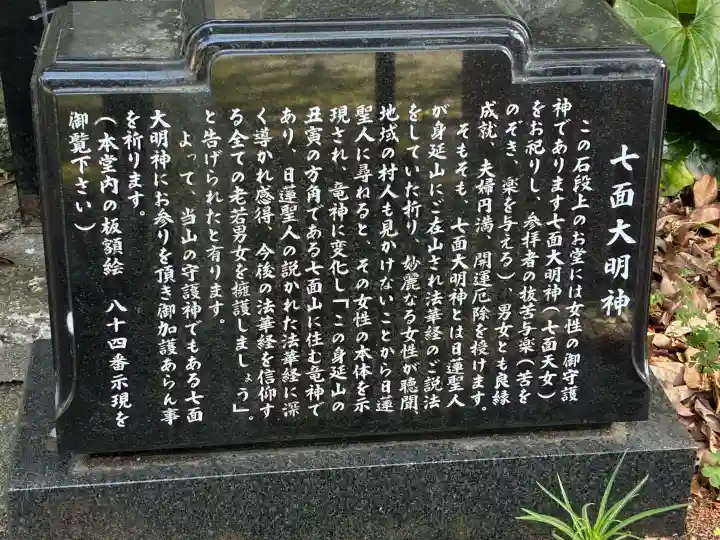 七面大明神
この石段上のお堂には女性の御守護
神であります七面大明神（七面天女）
をお祀りし、参拝者の抜苦与楽（苦を
のぞき、楽を与える）、男女とも良縁
成就、夫婦円満、開運厄除を授けます。
そもそも、七面大明神とは日蓮聖人
が身延山にご在山され法華経のご説法
をしていた折り、妙麗なる女性が聴聞、
地域の村人も見かけないことから日蓮
聖人に尋ねると、その女性の本体を示
現され、竜神に変化し「この身延山の
丑寅の方角である七面山に住む竜神で
あり、日蓮聖人の説かれた法華経に深
く導かれ感得、今後の法華経を信仰す
る全ての老若男女を擁護しましょう」。
と告げられたと有ります。
よって、当山の守護神でもある七面
大明神にお参りを頂き御加護あらん事
を祈ります。
（本堂内の板額絵　八十四番示現を
御覧下さい）